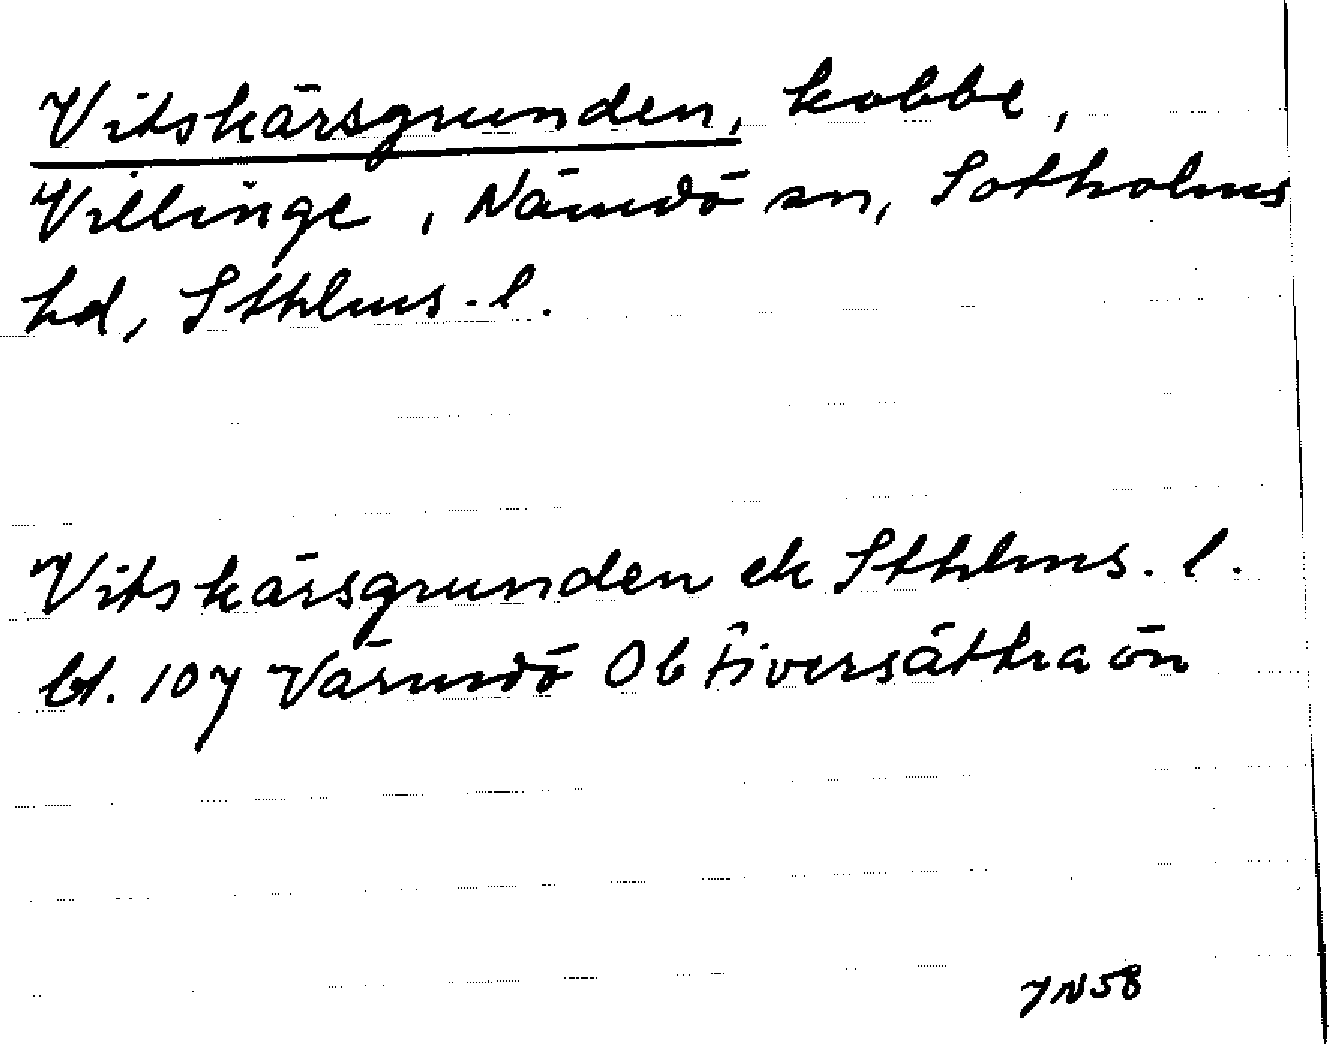 Vitskärsgrunden, kobbe,
Villinge, Nämdö sn, Sotholms
hd, Sthlms. l.
Vitskärsgrunden ek Sthlms. l.
bl. 107 Värmdö Ob